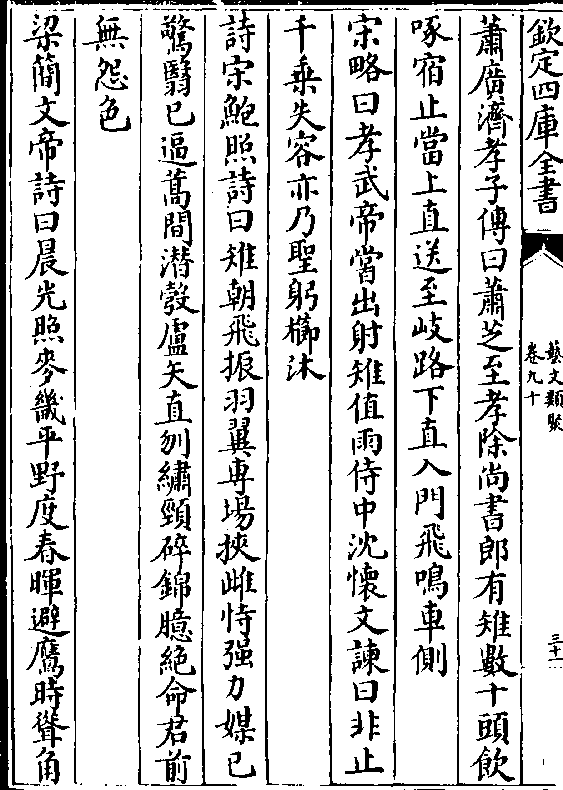 欽定四庫全書
藝文類聚
卷九十
三十一
蕭廣濟孝子傳曰蕭芝至孝除尚書郎有雉數十頭飲
啄宿止當上直送至岐路下直入門飛鳴車側
宋略曰孝武帝嘗出射雉值雨侍中沈懷文諫曰非止
千乗失容亦乃聖躬櫛沐
詩宋鮑照詩曰雉朝飛振羽翼専場挾雌恃强力媒已
驚翳已逼蒿間潜彀盧矢直刎繡頸碎錦臆絶命君前
無怨色
梁簡文帝詩曰晨光照麥畿平野度春暉避鷹時聳角